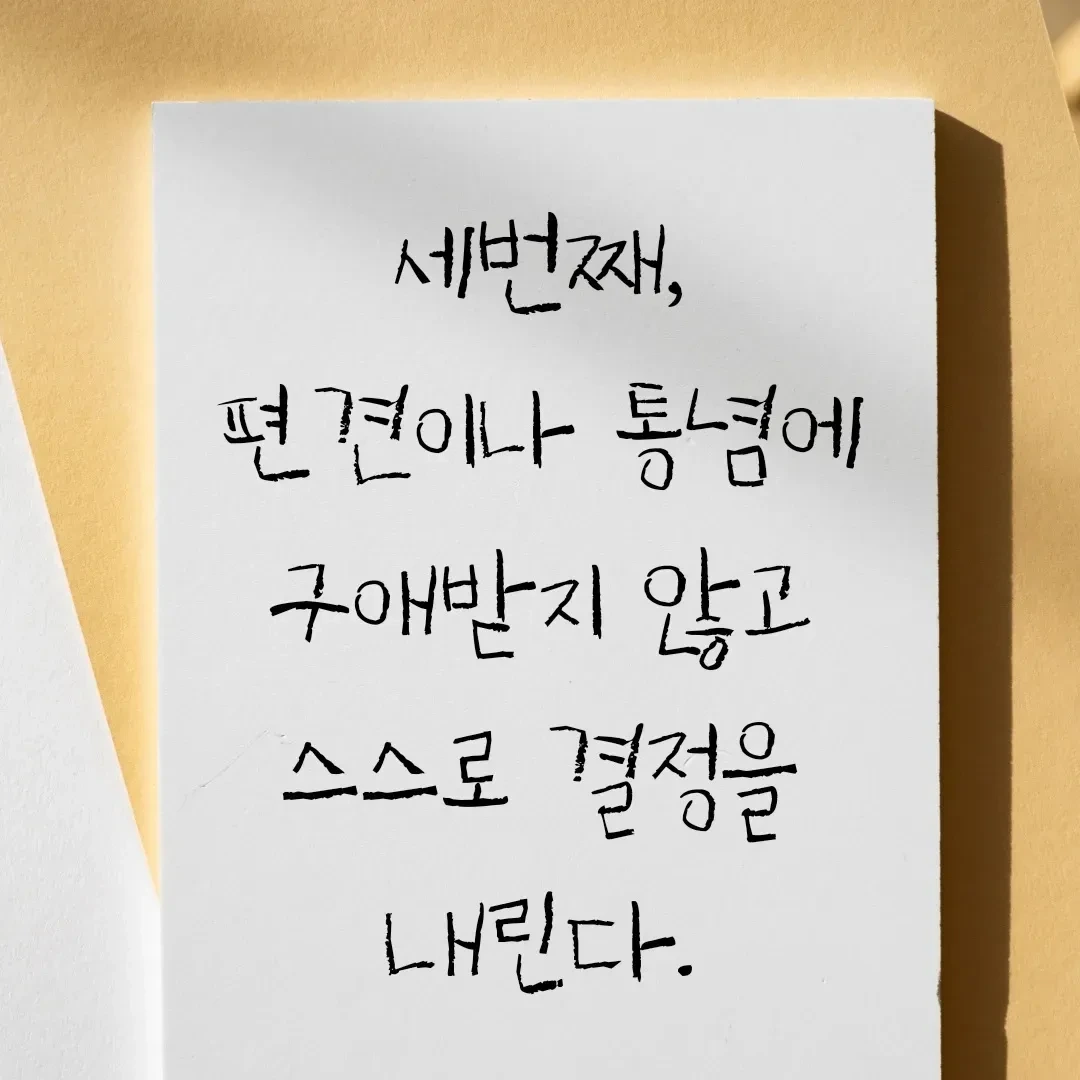 세번째,
편견이나 통념에
구애받지 않고
스스로 결정을
내린다.